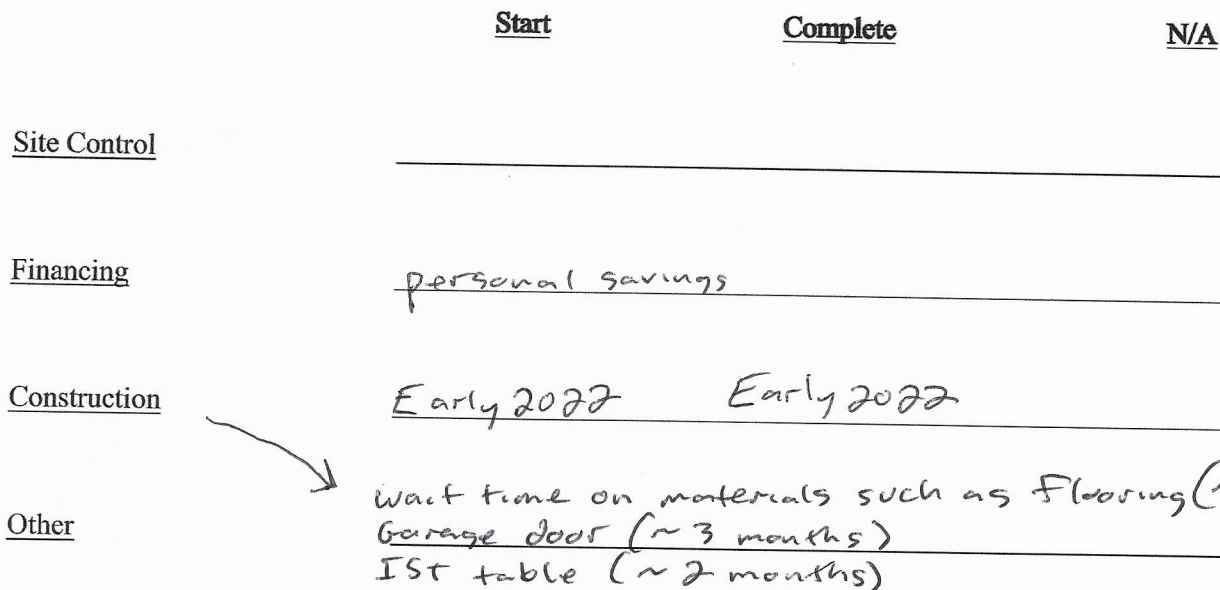 Start Complete N/A
Site Control
Financing personal savings
Construction Early 2022 Early 2022
wait time on materials such as Flooring (~
Other Garage door (~ 3 months)
IST table (~ 2 months)